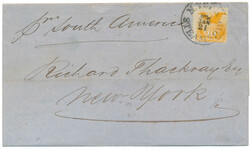 pr South America
Richard Thackray Esq
New York